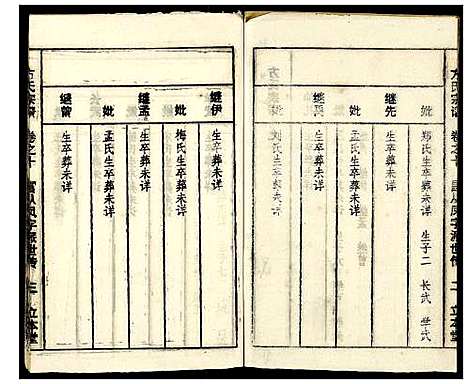 方氏宗谱 卷之十
二 立本堂
妣 郑氏生卒葬未详 生子二 长武
继先 生卒葬未详
妣 刘氏生卒葬未详
生卒葬未详
继伊 生卒葬未详
妣 梅氏生卒葬未详
继孟 生卒葬未详
妣 孟氏生卒葬未详
继曾 生卒葬未详
方氏宗谱 卷之十 富从凤字派世传 三 立本堂